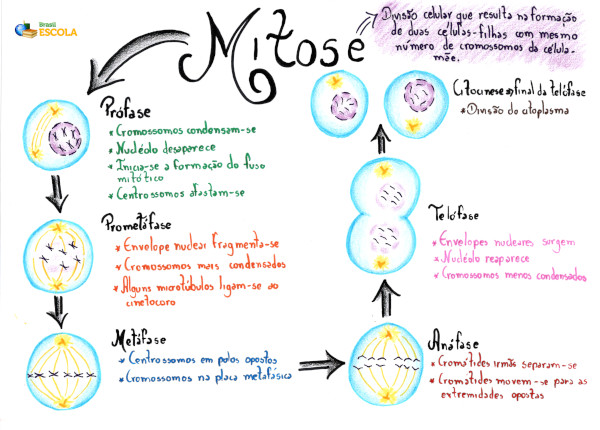 Brasil
ESCOLA
Mitose
Divisão celular que resulta na formação
de duas células-filhas com mesmo
número de cromossomos da célula-
mãe.
Prófase
* Cromossomos condensam-se
* Nucléolo desaparece
* Inicia-se a formação do fuso
mitótico
* Centrossomos afastam-se
Prometáfase
* Envelope nuclear fragmenta-se
* Cromossomos mais condensados
* Alguns microtúbulos ligam-se ao
cinetocoro
Metáfase
* Centrossomos em polos opostos
* Cromossomos na placa metafásica
Anáfase
* Cromátides irmãs separam-se
* Cromátides movem-se para as
extremidades opostas
Telófase
* Envelopes nucleares surgem
* Nucléolo reaparece
* Cromossomos menos condensados
Citocinese⇒final da telófase
* Divisão do citoplasma